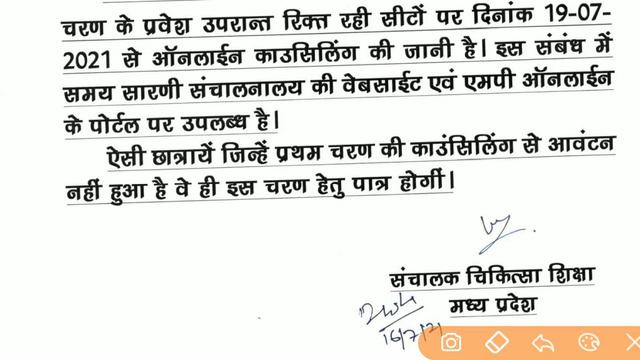 चरण के प्रवेश उपरान्त रिक्त रही सीटों पर दिनांक 19-07-
2021 से ऑनलाईन काउसिलिंग की जानी है। इस संबंध में
समय सारणी संचालनालय की वेबसाईट एवं एमपी ऑनलाईन
के पोर्टल पर उपलब्ध है।
ऐसी छात्रायें जिन्हें प्रथम चरण की काउंसिलिंग से आवंटन
नहीं हुआ है वे ही इस चरण हेतु पात्र होगीं।
संचालक चिकित्सा शिक्षा
मध्य प्रदेश
16/7/21